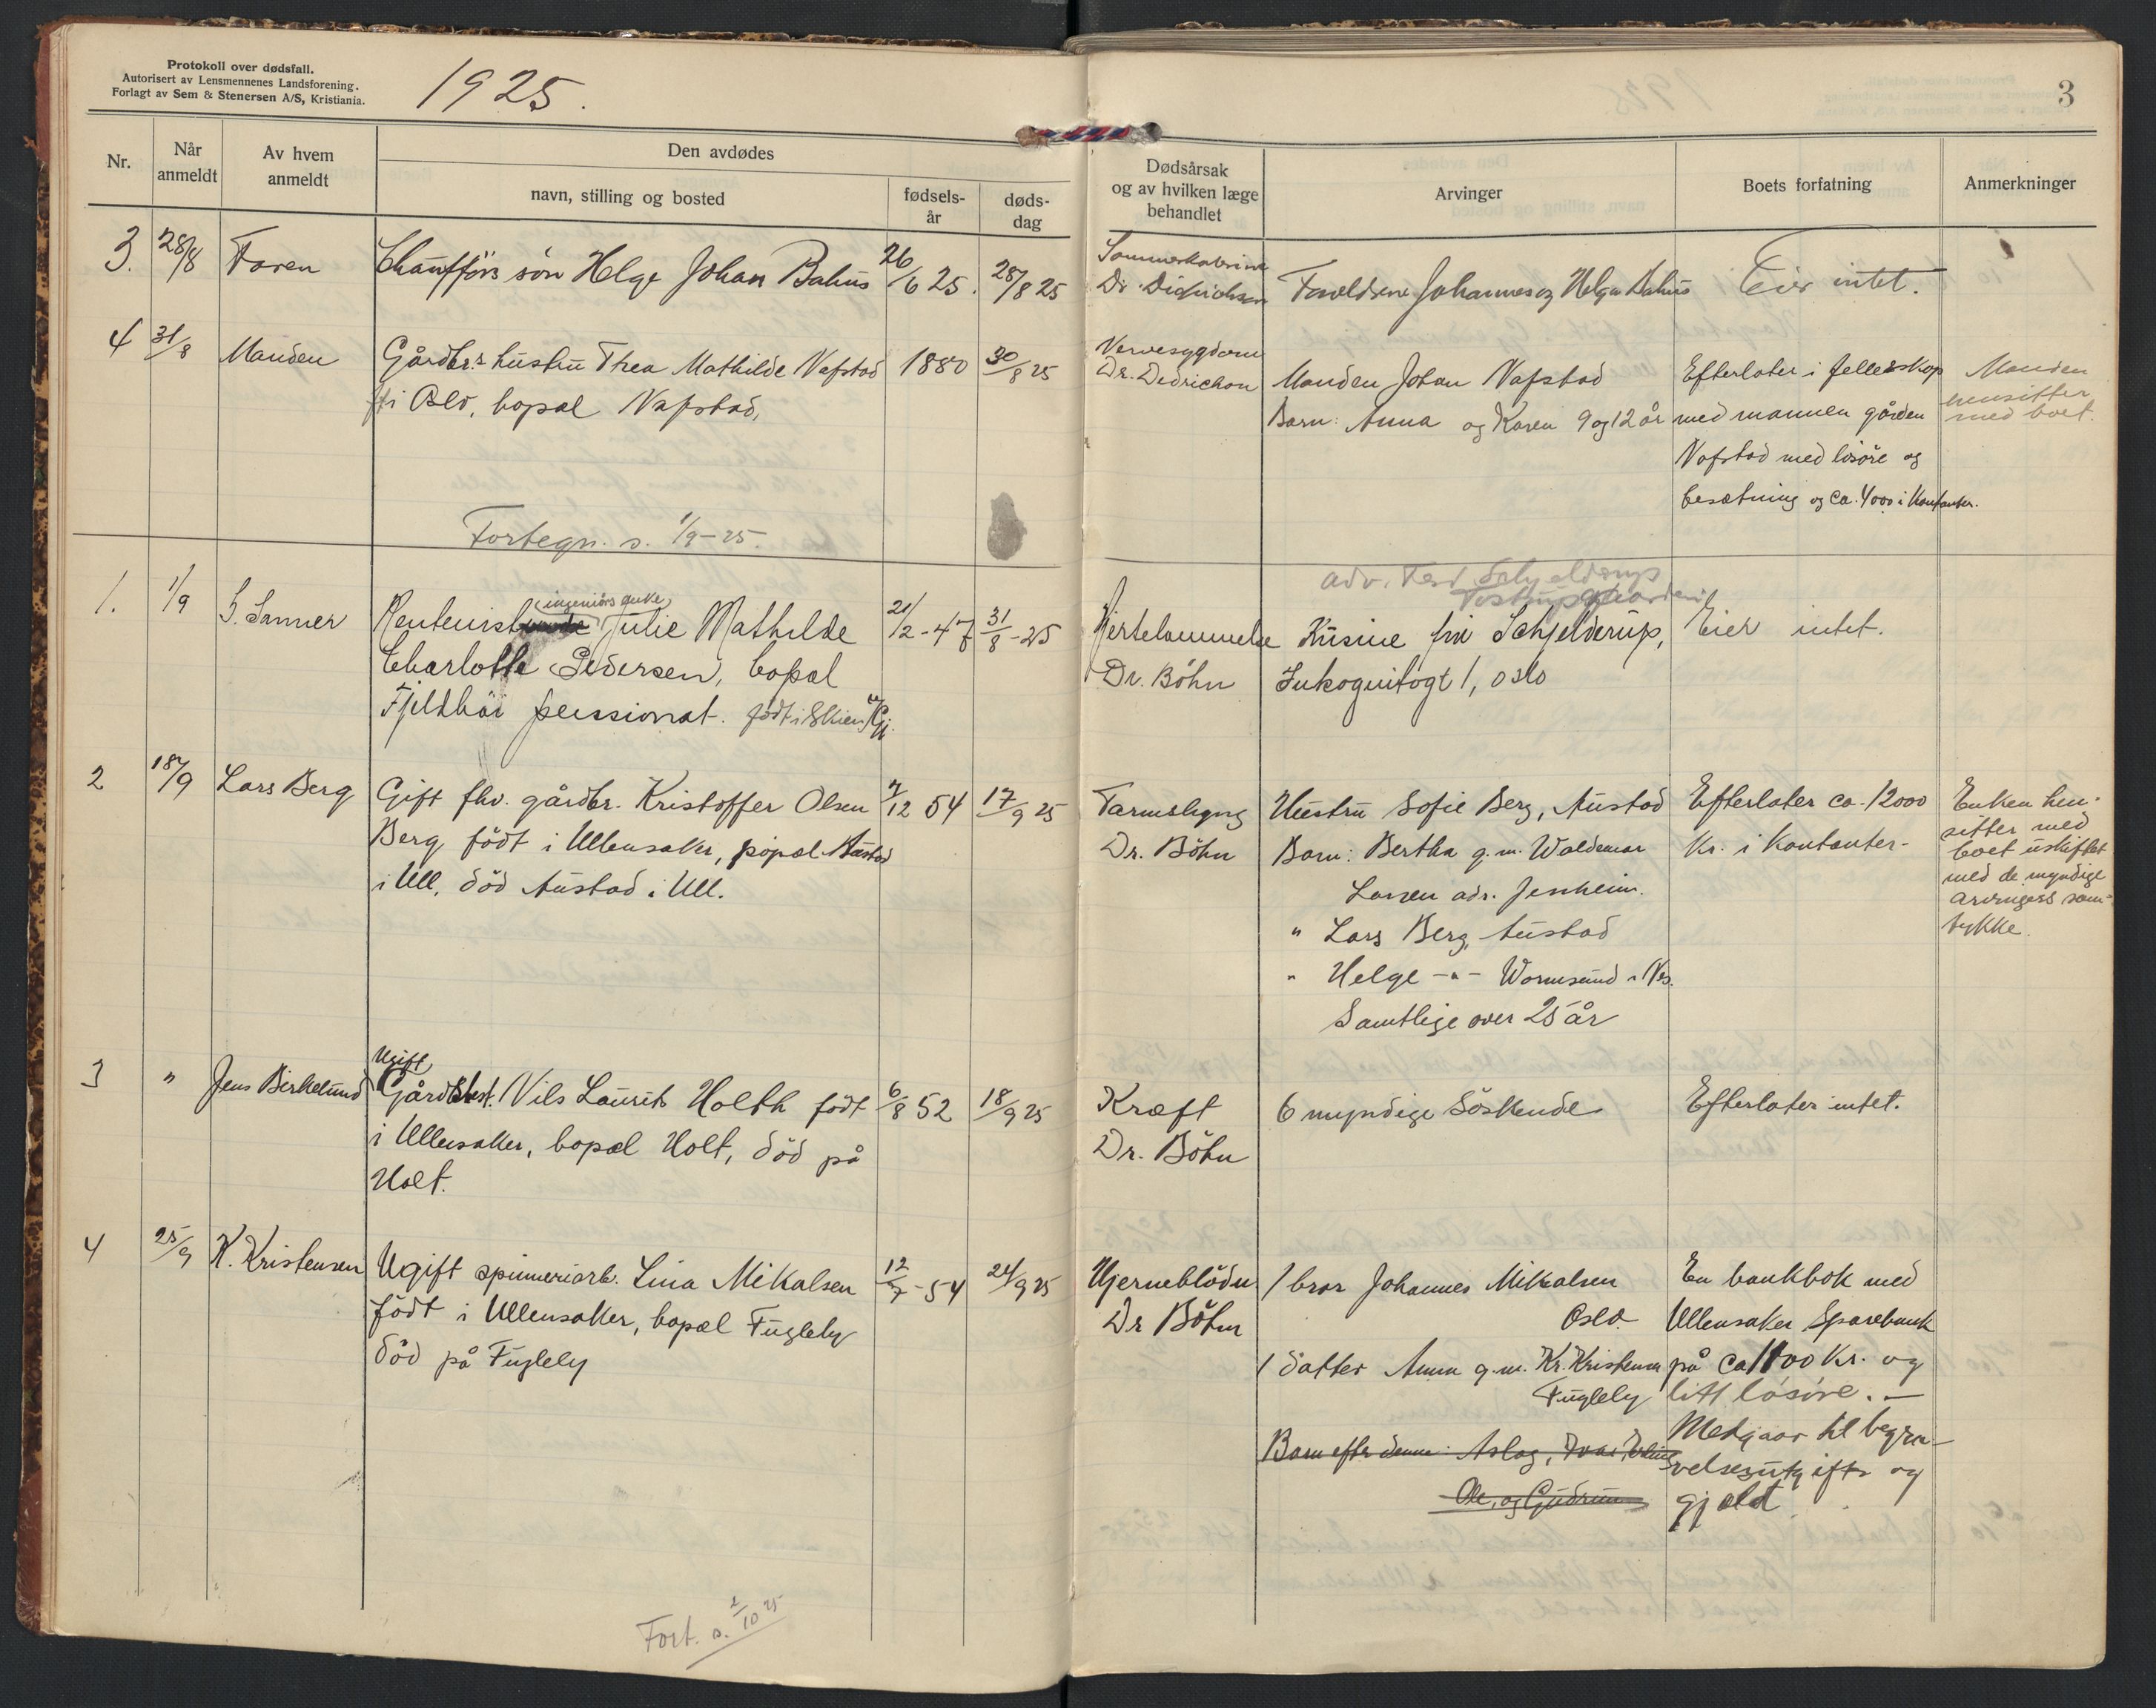 Protokoll over dødsfall.
Autorisert av Lensmennenes Landsforening.
Forlagt av Sem & Stenersen A/S, Kristiania.
1925.
3
Nr.
Når anmeldt
Av hvem anmeldt
Den avdødes
navn, stilling og bosted
fødsels-
år
døds-
dag
Dødsårsak
og av hvilken læge
behandlet
Arvinger
Boets forfatning
Anmerkninger
3. 28/8 Faren Chaufförs sön Helge Johan Bahus 26/6 25. 28/8 25
Dr. Didrichsen Foreldrene Johannes og Helga Bahus Eier intet.
4 31/8 Manden Gårdbr.s hustru Thea Mathilde Nafstad 1880 30/8 25
bopæl Nafstad,
Nervesygdom
Dr. Dedrichsen Manden Johan Nafstad
Barn: Anna og Karen 9 og 12 år
Efterlater i fellesskap
med mannen gården
Nafstad med lösöre og
besætning og ca. 4000 i Kontanter.
Manden
hensitter
med boet.
Fortegn. s. 1/9-25.
1. 1/9 S. Sanner (ingeniørs enke)
Julie Mathilde 21/2-47 31/8-25
Charlotte Pedersen, bopæl
Fjeldhöi pensionat. født i Skien
Hjertelammelse
Dr. Böhn
adv. Ferd Schjelderup
Kusine frk Schjelderup,
Inkognitogt 1, Oslo
Eier intet.
2 18/9 Lars Berg Gift fhv. gårdbr. Kristoffer Olsen 7/12 54 17/9 25
Berg födt i Ullensaker, bopæl Austad
i Ull, död Austad i Ull.
Tarmslyng
Dr. Böhn
Hustru Sofie Berg, Austad
Barn: Bertha g.m. Waldemar
Larsen adr. Jessheim.
" Lars Berg, Austad
" Helge -"- Wormsund i Nes.
Samtlige over 25 år
Efterlater ca. 12000
Kr. i Kontanter.
Enken hen-
sitter med
boet uskiftet
med de myndige
arvingers sam-
tykke.
3 " Jens Birkelund Ugift
Nils Laurits Holth födt 6/8 52 18/9 25
i Ullensaker, bopæl Holt, död på
Holt.
Kræft
Dr. Böhn
6 myndige Söskende
Efterlater intet.
4 25/9 K. Kristensen Ugift spinneriarb. Lina Mikalsen 12/7-54 24/9 25
födt i Ullensaker, bopæl Fuglely
död på Fuglely
Hjerneblödn
Dr Böhn
1 bror Johannes Mikalsen
Oslo.
1 datter Anna g.m. Kr. Kristensen
Fuglely
Barn efter denne: Aslag, Ivar, Erling
Ole, og Gudrun
En bankbok med
Ullensaker Sparebank
på ca 1100 Kr. og
litt lösöre.-
Medgaar til begra-
velsesutgifter og
gjæld
Fort. s. 2/10 25